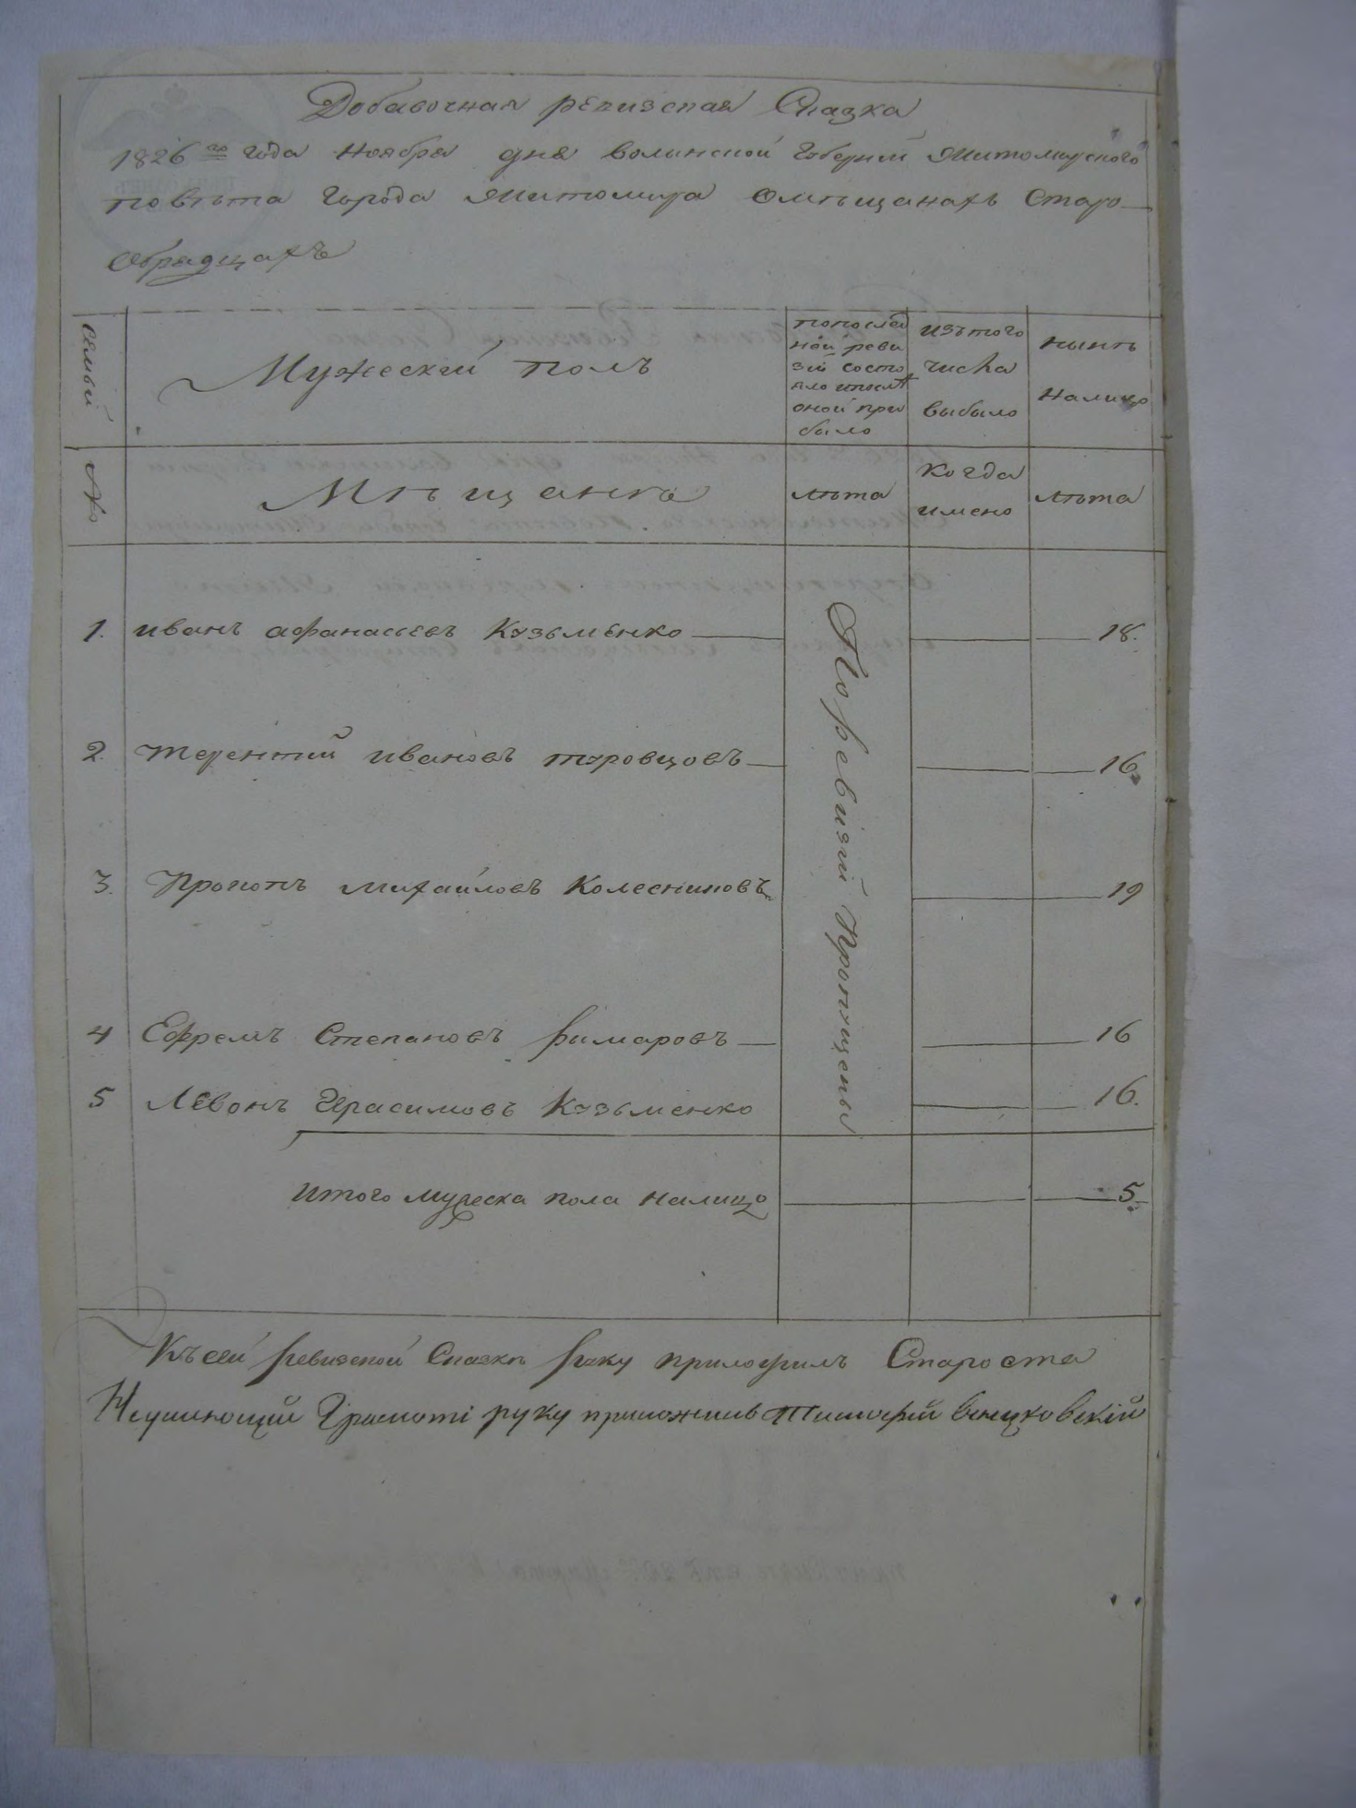 Добавочная ревизская Сказка
1826го года Ноября дня волынской губернии Житомирского
повѣта города Житомира омѣщанахъ Старо
обрядцахъ
семьи
Мужескій полъ
попослед
ней реви
зіи состо
яло ипосля
оной при
было
изътого
числа
выбыло
нынѣ
налицо
№
Мѣщанѣ
лѣта
когда
имено
лѣта
1. иванъ афанасьевъ Кузьменко 18.
2. терентий ивановъ туровцовъ 16.
3. Прокопъ михайловъ Колесниковъ 19
4 Ефремъ Степановъ римаровъ 16
5 Левонъ Герасимовъ Кузьменко 16.
По ревизіи Пропущены
итого мужеска пола налицо 5.
Къ сей ревизской Сказкѣ руку приложилъ Староста
Неумеющий Грамоті руку приложивъ Тимофей